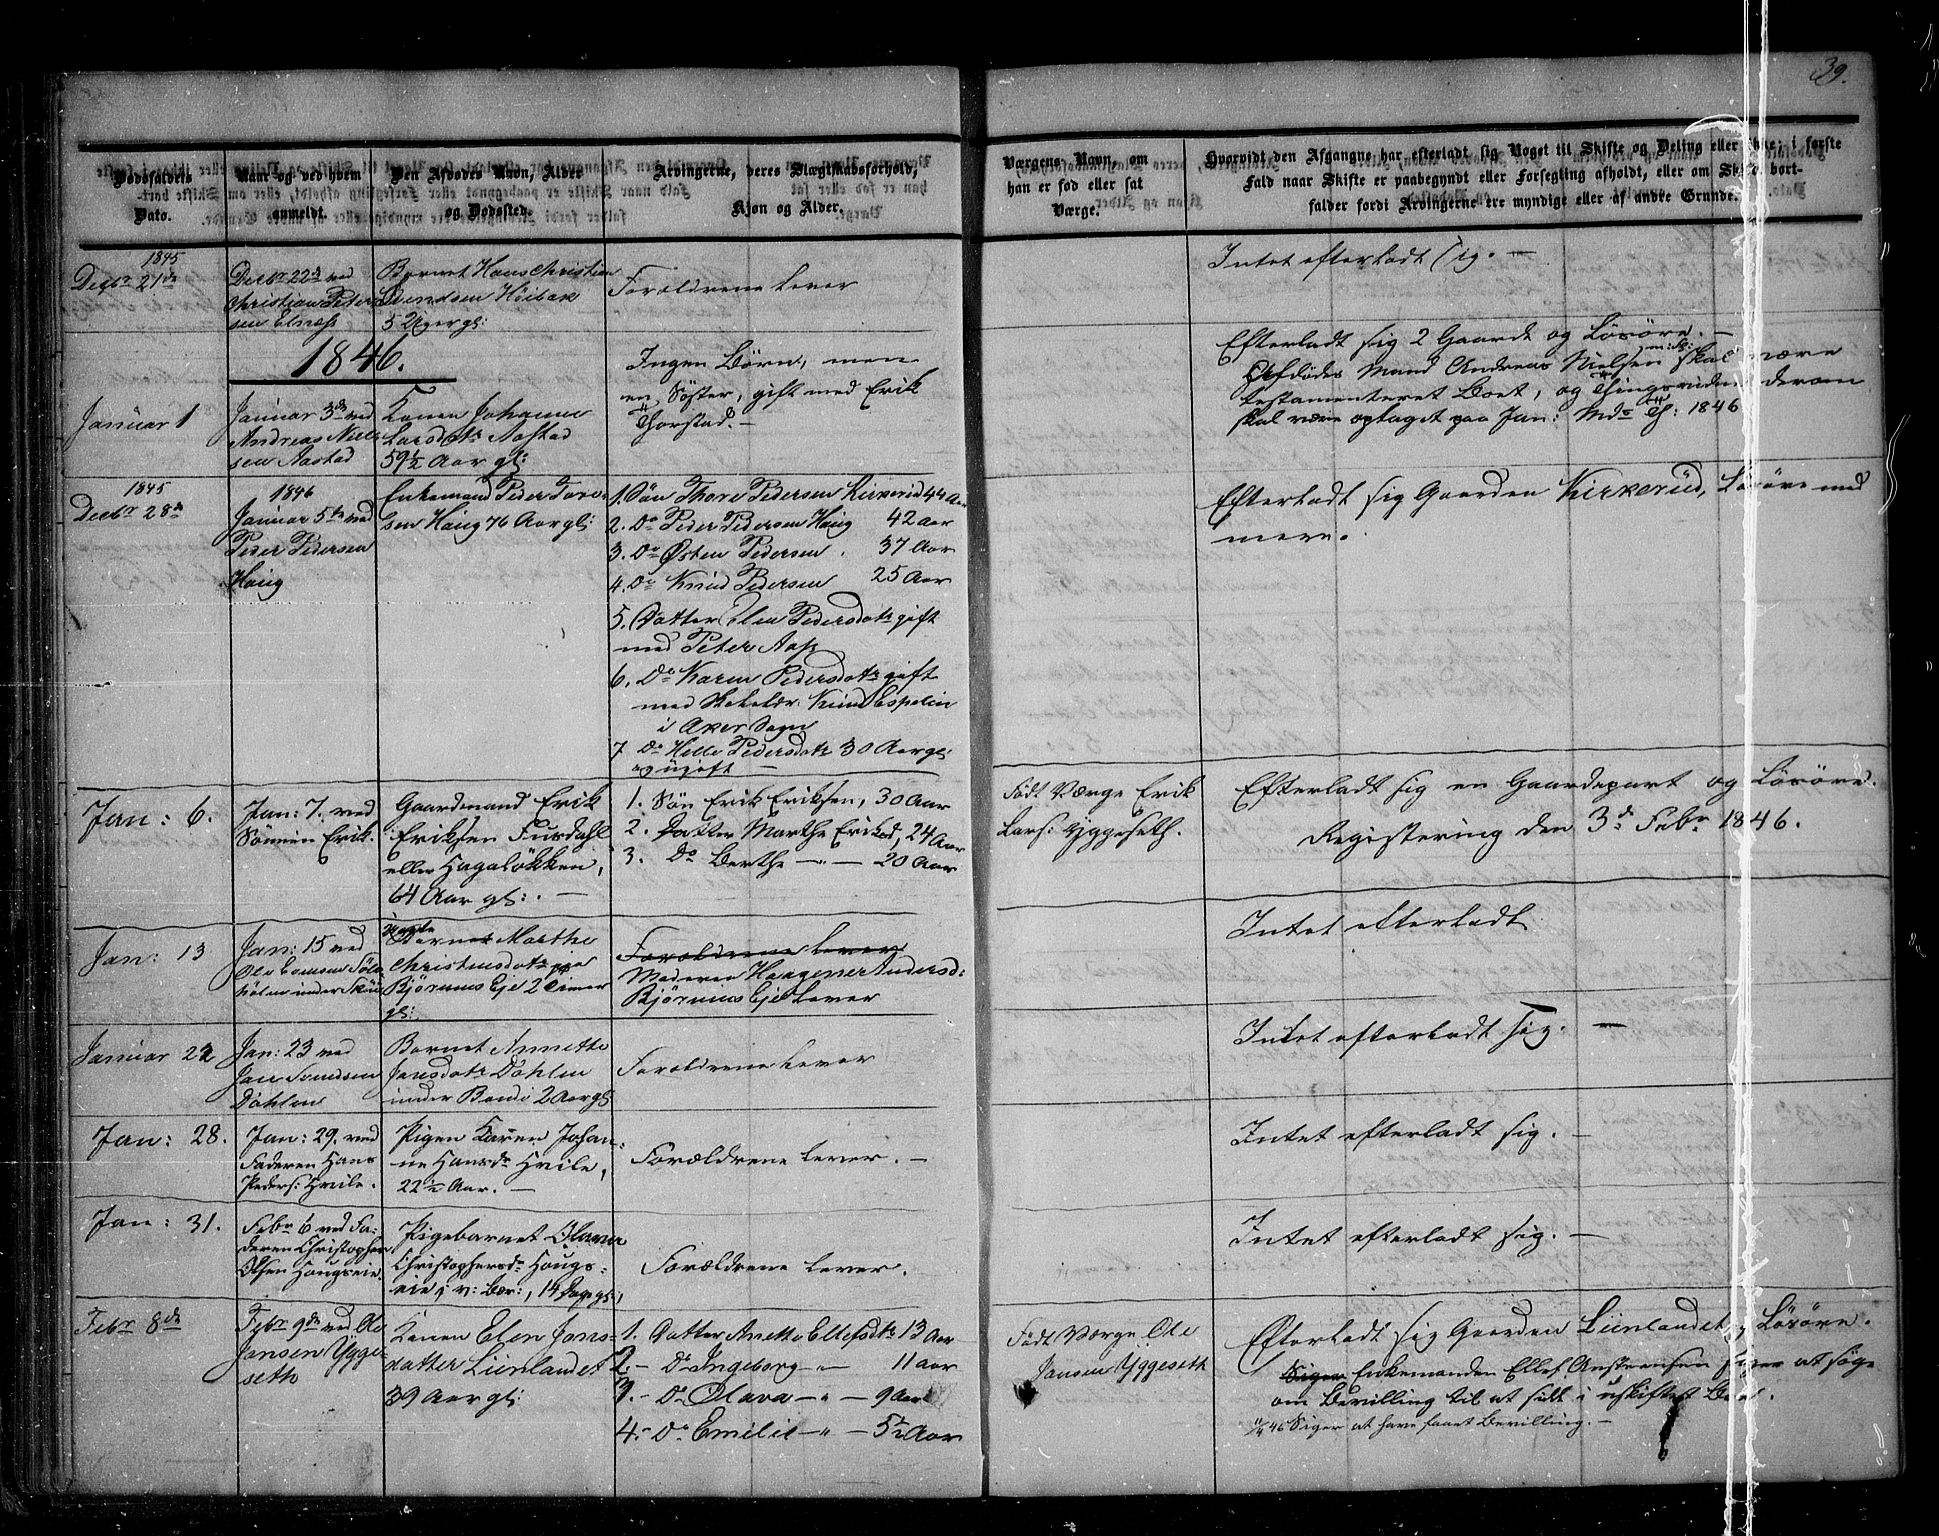 39.
Dødsfaldets
Dato.
Naar og ved hvem
anmeldt.
Den Afdødes Navn, Alder
og Dødssted.
Arvingerne, deres Slægtskabsforhold,
Kjøn og Alder.
Værgens Navn, om
han er fød eller sat
Værge.
Hvorvidt den Afgangne har efterladt sig Noget til Skifte og Deling eller ikke; i første
Fald naar Skifte er paabegyndt eller Forsegling afholdt, eller om Skifte bort-
falder fordi Arvingerne ere myndige eller af andre Grunde.
1845
Decbr 21de
Decbr 22de ved
Christian Peder
sen Elnæss
Barnet Hans Christian
Svendsen Høibak
5 Uger gl:
Forældrene lever
Intet efterladt sig. —
1846.
Januar 1
Januar 3de ved
Andreas Niel-
sen Aastad
Konen Johanne
Larsdatr Aastad
59½ Aar gl:
Ingen Børn, men
en Søster, gift med Erik
Thorstad. —
Efterladt sig 2 Gaarde og Løsøre. —
Afdødes Mand Andreas Nielsen skal være
testamenteret Boet, og Thingsvidne derom
skal være optaget paa Jan: Mds Th: 1846
1845
Decbr 28de
1846
Januar 5te ved
Peder Pedersen
Haug
Enkemand Peder Tore-
sen Haug 76 Aar gl:
1. Søn Thore Pedersen Kirkerud 44 Aar
2. Do Peder Pedersen Haug 42 Aar
3. Do Østen Pedersen. 37 Aar
4. Do Knud Pedersen 25 Aar
5. Datter Elen Pedersdatr gift
med Peter Aass
6. Do Karen Pedersdatr gift
med Knud Espelin
i Aker Sogn
7 Do Helle Pedersdatr 30 Aar gl:
og ugift —
Efterladt sig Gaarden Kirkerud, Løsøre med
mere.
Jan: 6.
Jan: 7. ved
Sønnen Erik.
Gaardmand Erik
Eriksen Fusdahl
eller Hagaløkken,
64 Aar gl:. —
1. Søn Erik Eriksen, 30 Aar
2. Datter Marthe Eriksd, 24 Aar
3. Do Berthe —"— 20 Aar
Født Værge Erik
Lars: Yggeseth.
Efterladt sig en Gaardepart og Løsøre.
Registering den 3de Febr 1846.
Jan: 13
Jan: 15 ved
Barnet Marthe
Bjørnnes Eje 2 Timer
gl:
Forældrene lever
Moderen Haagene Andersd:
Bjørnnes Eje lever
Intet efterladt
Januar 22
Jan: 23 ved
Jan Svendsen
Døhlen
Barnet Annette
Jansdatr Døhlen
under Bondi 2 Aar gl
Forældrene lever
Intet efterladt sig. —
Jan: 28.
Jan: 29. ved
Faderen Hans
Peders: Hvile.
Pigen Karen Johan-
ne Hansdr Hvile,
22½ Aar. —
Forældrene lever. —
Intet efterladt sig. —
Jan: 31.
Febr 6 ved Fa-
deren Christopher
Olsen Hougseie.
Pigebarnet Olava
Christophersdr Hougs-
eie i v: Bær:, 14 Dage gl:
Forældrene lever.
Intet efterladt sig. —
Febr 8de
Febr 9de ved Ole
Jansen Ygge-
seth
Konen Elen Jans-
datter Lienlandet
39 Aar gl:
1. Datter Anette Ellefsdtr 13 Aar
2. — Do Ingeborg —"— 11 Aar
3. — Do Olava —"— 9 Aar
4. — Do Emilie —"— 5½ Aar
Født Værge Ole
Jansen Yggeseth
Efterladt sig Gaarden Lienlandet og Løsøre.
Siger Enkemanden Ellef Anstensen siger at søge
om Bevilling til at sidde i uskiftet Boe.
46 Siger at have faaet Bevilling. —